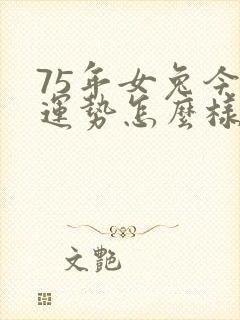 75年女兔今
運勢怎麼樣
文艷